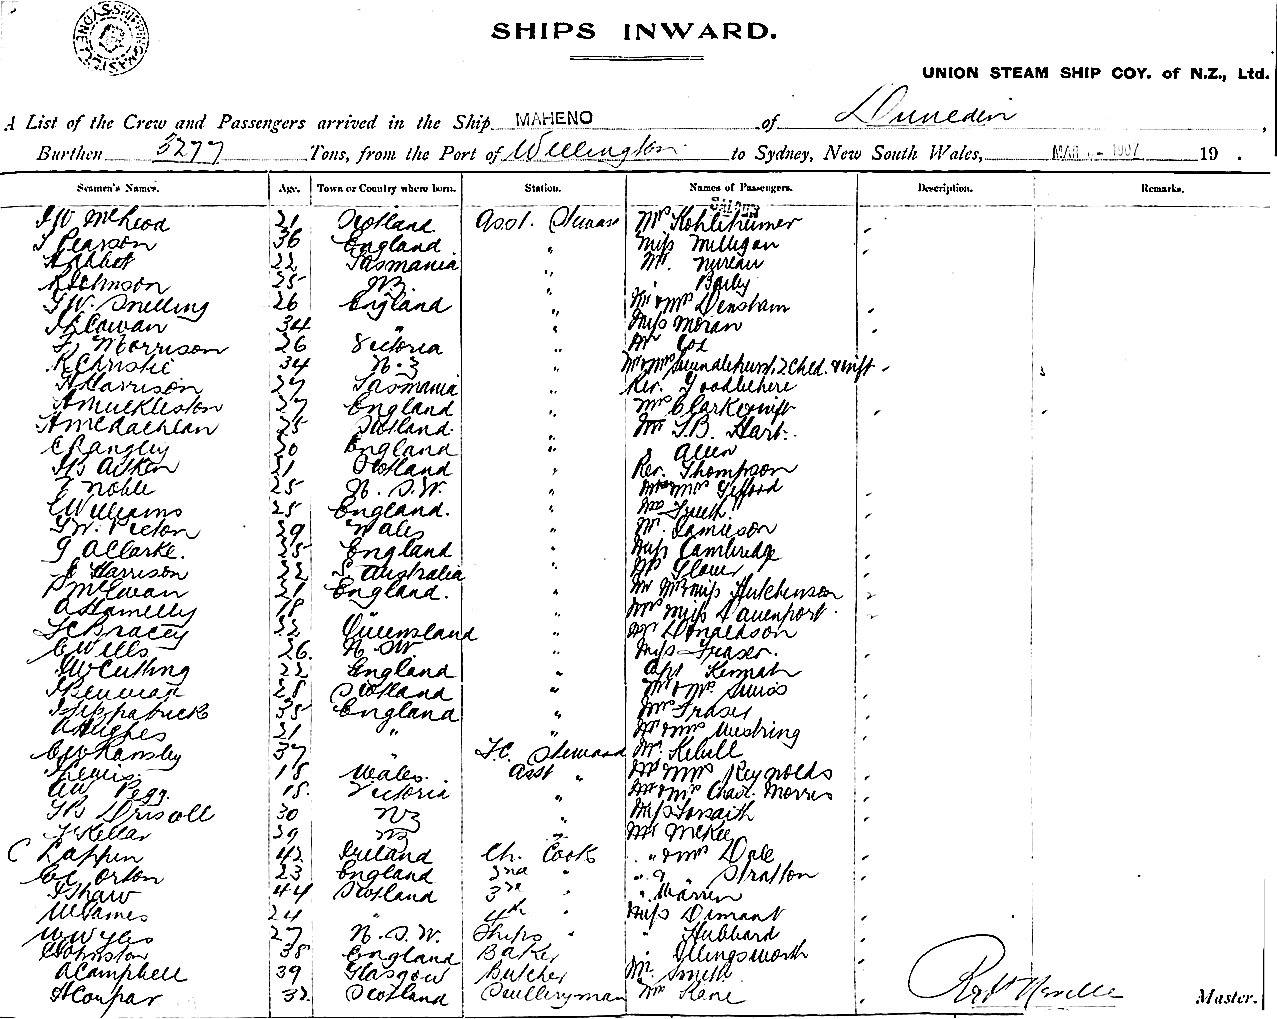 SHIPS INWARD.
UNION STEAM SHIP COY. of N.Z., Ltd.
A List of the Crew and Passengers arrived in the Ship MAHENO of Dunedin,
Burthen 5277 Tons, from the Port of Wellington to Sydney, New South Wales, MAR 1907 19 .
Seamen's Names. Age. Town or Country where born. Station. Names of Passengers. Description. Remarks.
SALOON
J W McLeod 21 Scotland Asst. Steward Mr Kohlheimer
J Pearson 36 England " Miss Milligan
A Abbot 22 Tasmania " Mr.
R Johnson 25 NZ " " Baily
J.W. Snelling 26 England " Mr & Mrs Densham
Cowan 34 " " Miss Moran
F Morrison 26 Victoria " Mr Cox
R Christie 34 N.Z " Mr & Mrs 2 Chld. & inft
A Harrison 27 Tasmania " Rev. Goodbehere
A Muckleston 27 England " Mrs Clark & inft
A McLachlan 25 Scotland " Mr T.B. Hart.
C Rangley 20 England " " Allen
J B Aitken 21 Scotland " Rev. Thompson
Noble 25 N.S.W. " Mr & Mrs Gifford
C Williams 25 England. "
J W. Picton 29 Wales " Mr. Jamieson
G A Clarke. 25 England " Miss Cambridge
J Harrison 22 S. Australia " Mr Glover
McEwan 21 England. " Mr Mrs & Miss Hutchinson
A 18 " " Mrs & Miss Davenport.
F C Bracey 22 Queensland " Mr Donaldson
C Wells 26 N.S.W " Miss Fraser.
W Cutting 22 England " Capt
28 Scotland " Mr & Mrs Simos
J Fitzpatrick 35 England " Mr Fraser
A Hughes 21 " " Mr & Mrs
C W Hansby 37 " F.C. Steward Mr.
Lewis 18 Wales. Asst " Mr & Mrs Reynolds
A W Pegg. 18 Victoria " Mr & Mrs Chas. Morris
J B Driscoll 30 NZ " Miss Forsaith
J Kellar 29 NZ " Mr McKee
C Lappin 42 Ireland Ch. Cook " & Mrs Dale
C C Orton 23 England 2nd " " " Stratton
J Shaw 44 Scotland 3rd " " Warren
W James 24 " 4th " Miss Dimant
W Wyles 27 N.S.W. Ships " " Hubbard
Johnston 38 England Baker " Illingsworth
A Campbell 39 Glasgow Butcher Mr. Smith
A Coupar 32 Scotland Sculleryman Mr Kane
Robt Neville Master.